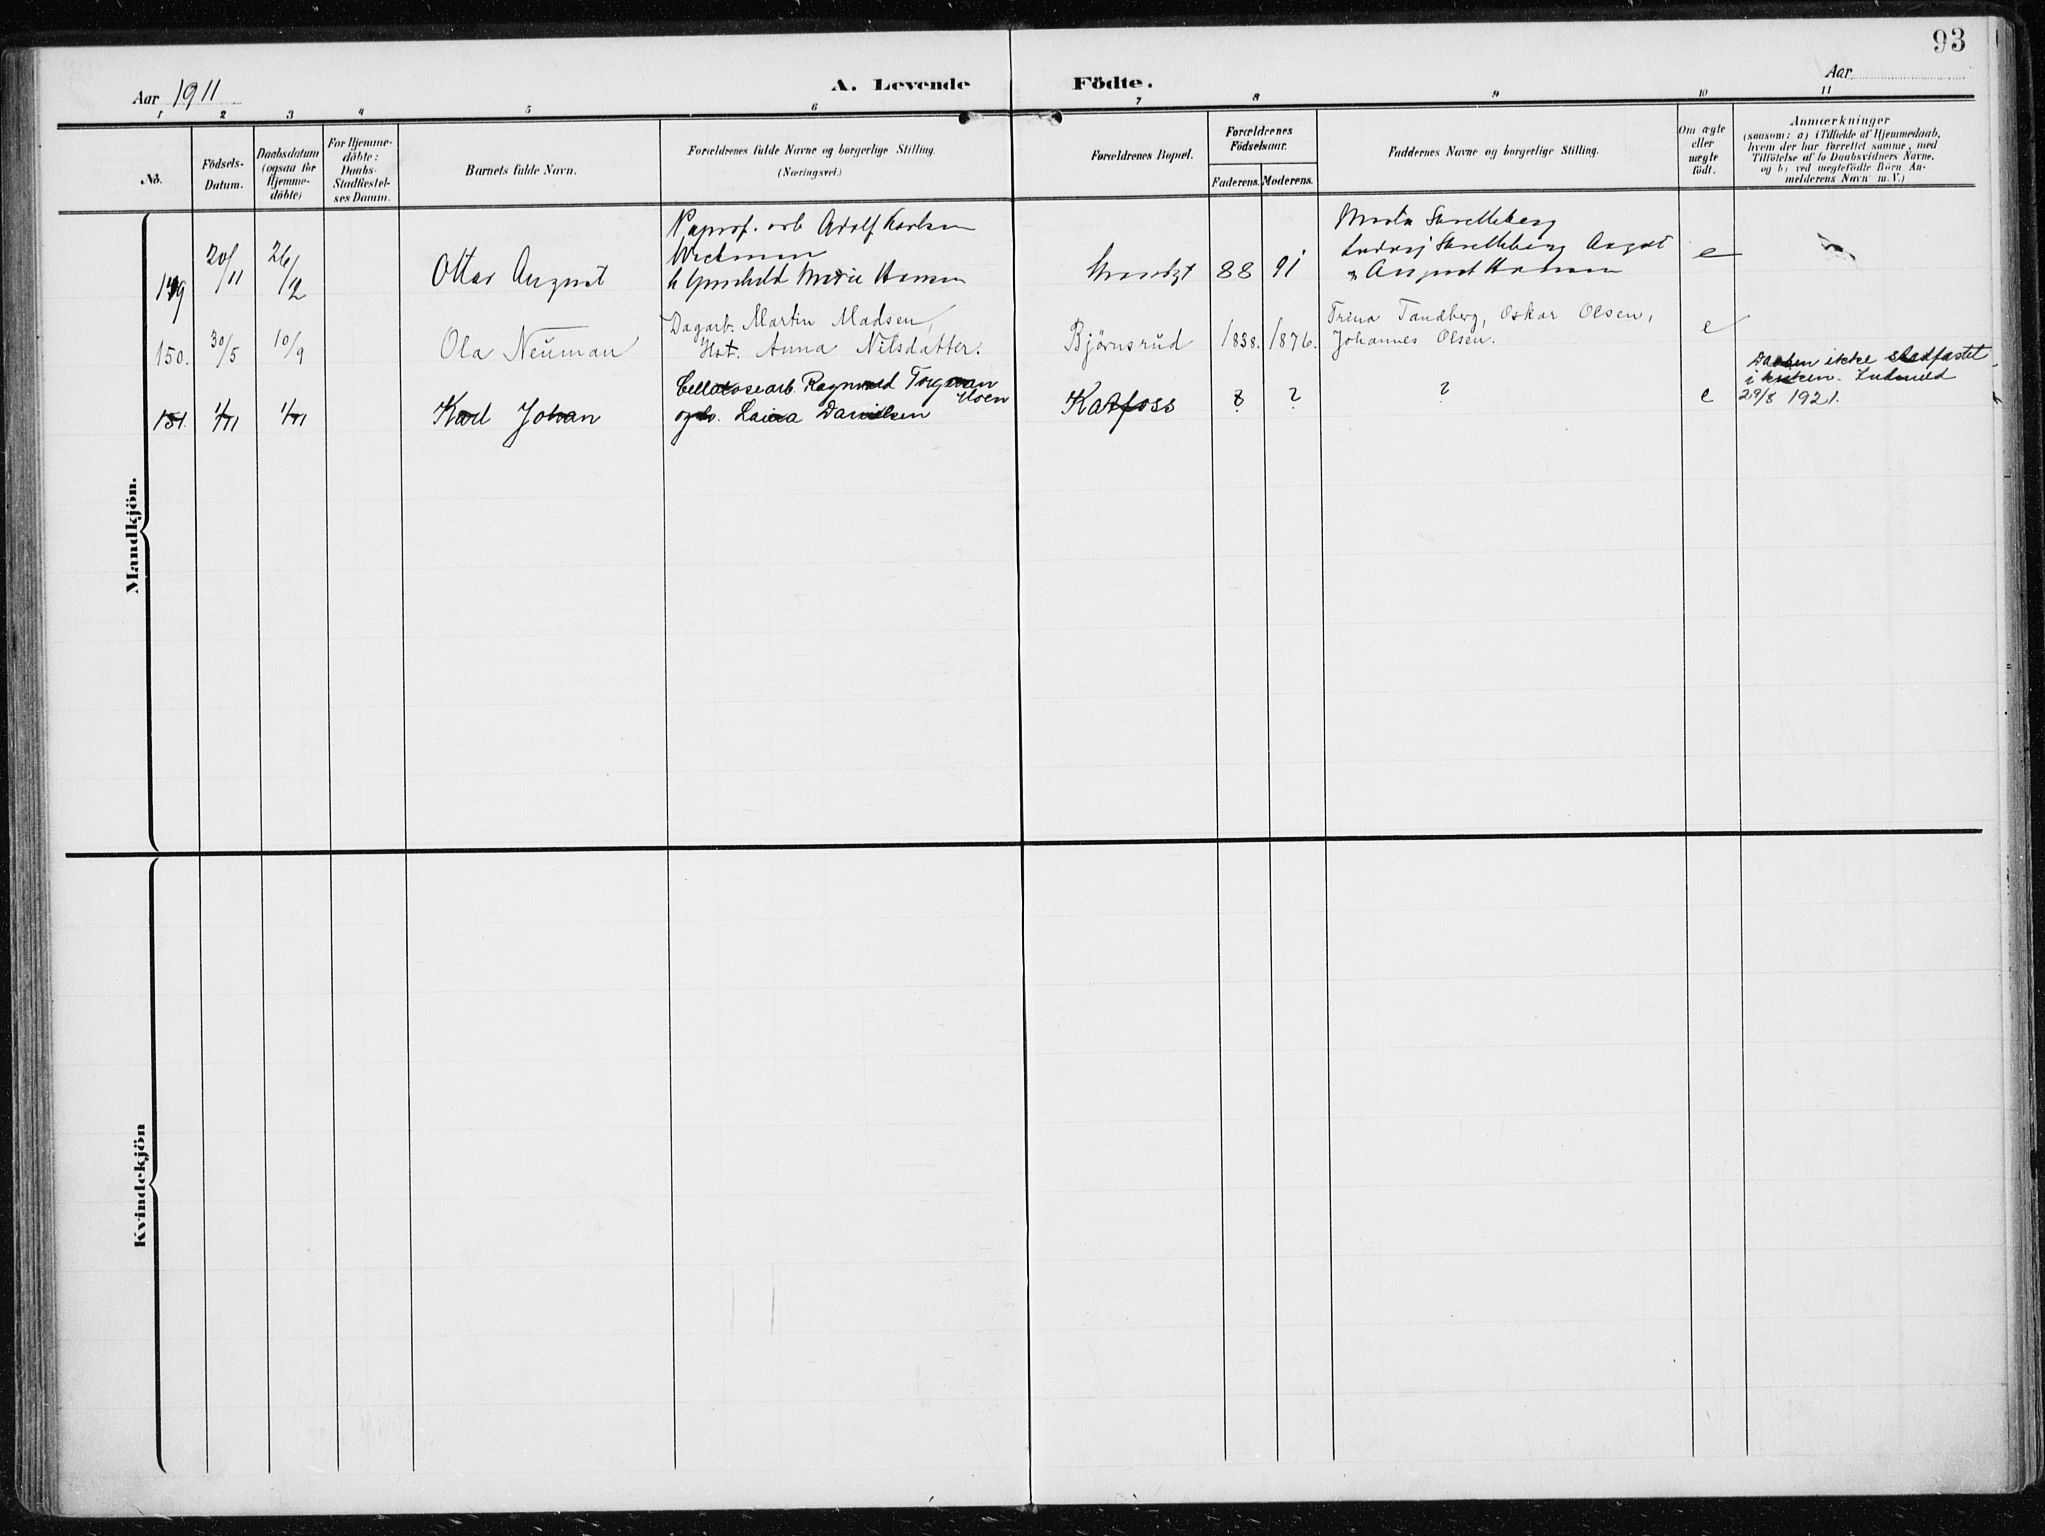 93
Aar 1911
A. Levende Födte.
Aar
1 2 3 4 5 6 7 8 9 10 11
No.
Födsels-Datum.
Daabsdatum (ogsaa för Hjemme-döbte)
For Hjemme-döbte: Daabs-Stadfæstel-ses Datum.
Barnets fulde Navn.
Forældrenes fulde Navne og borgerlige Stilling.
(Næringsvei.)
Forældrenes Bopæl.
Forældrenes Födselsaar.
Faderens. Moderens.
Faddernes Navne og borgerlige Stilling.
Om ægte eller uægte födt.
Anmærkninger
(saasom: a) i Tilfælde af Hjemmedaab,
hvem der har forrettet samme, med
Tilföielse af to Daabsvidners Navne,
og b) ved uægtefödte Börn An-
melderens Navn m. V.)
Mandkjön.
149 20/11 26/12 Ottar August
arb Adolf Karlsen
h Gunhild Marie Hansen
88 91
August Hansen
e
150. 30/5 10/9 Ola Neuman
Dagarb. Martin Madsen,
Hst. Anna Nilsdatter.
Björnsrud 1838. 1876.
Trina Tandberg, Oskar Olsen,
Johannes Olsen.
e
151. 1/11 1/11 Karl Johan
Cellulosearb. Ragnvald Torgman
Moen
Laura Danielsen
Katfoss ? ? ? e
Daaben ikke stadfæstet
i kirken. Indmeld
29/8 1921.
Kvindekjön